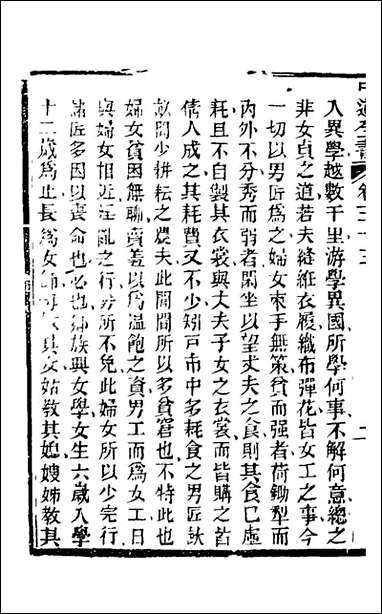 中通全書 卷三十三 二
入異學越數千里游學異國所學何事不解何意總之
非女貞之道若夫縫絍衣履織布彈花皆女工之事今
一切以男匠爲之婦女束手無策貧而强者荷鋤犁而
內外不分秀而弱者閑坐以望丈夫之食則其食已虛
耗且不自製其衣裳與丈夫子女之衣裳而皆購之皆
倩人成之其耗費又不少矧戶市中多耗食之男匠
間少耕耘之農夫此閭閻所以多貧窘也不特此也
婦女貧困無聊賣羞以爲溫飽之資男工而爲女工日
與婦女相近淫亂之行所不免此婦女所以少完行
匠多因以喪命也必也族興女學女生六歲入學
十二歲爲止長爲女師其女姑敎其媳嫂姊敎其